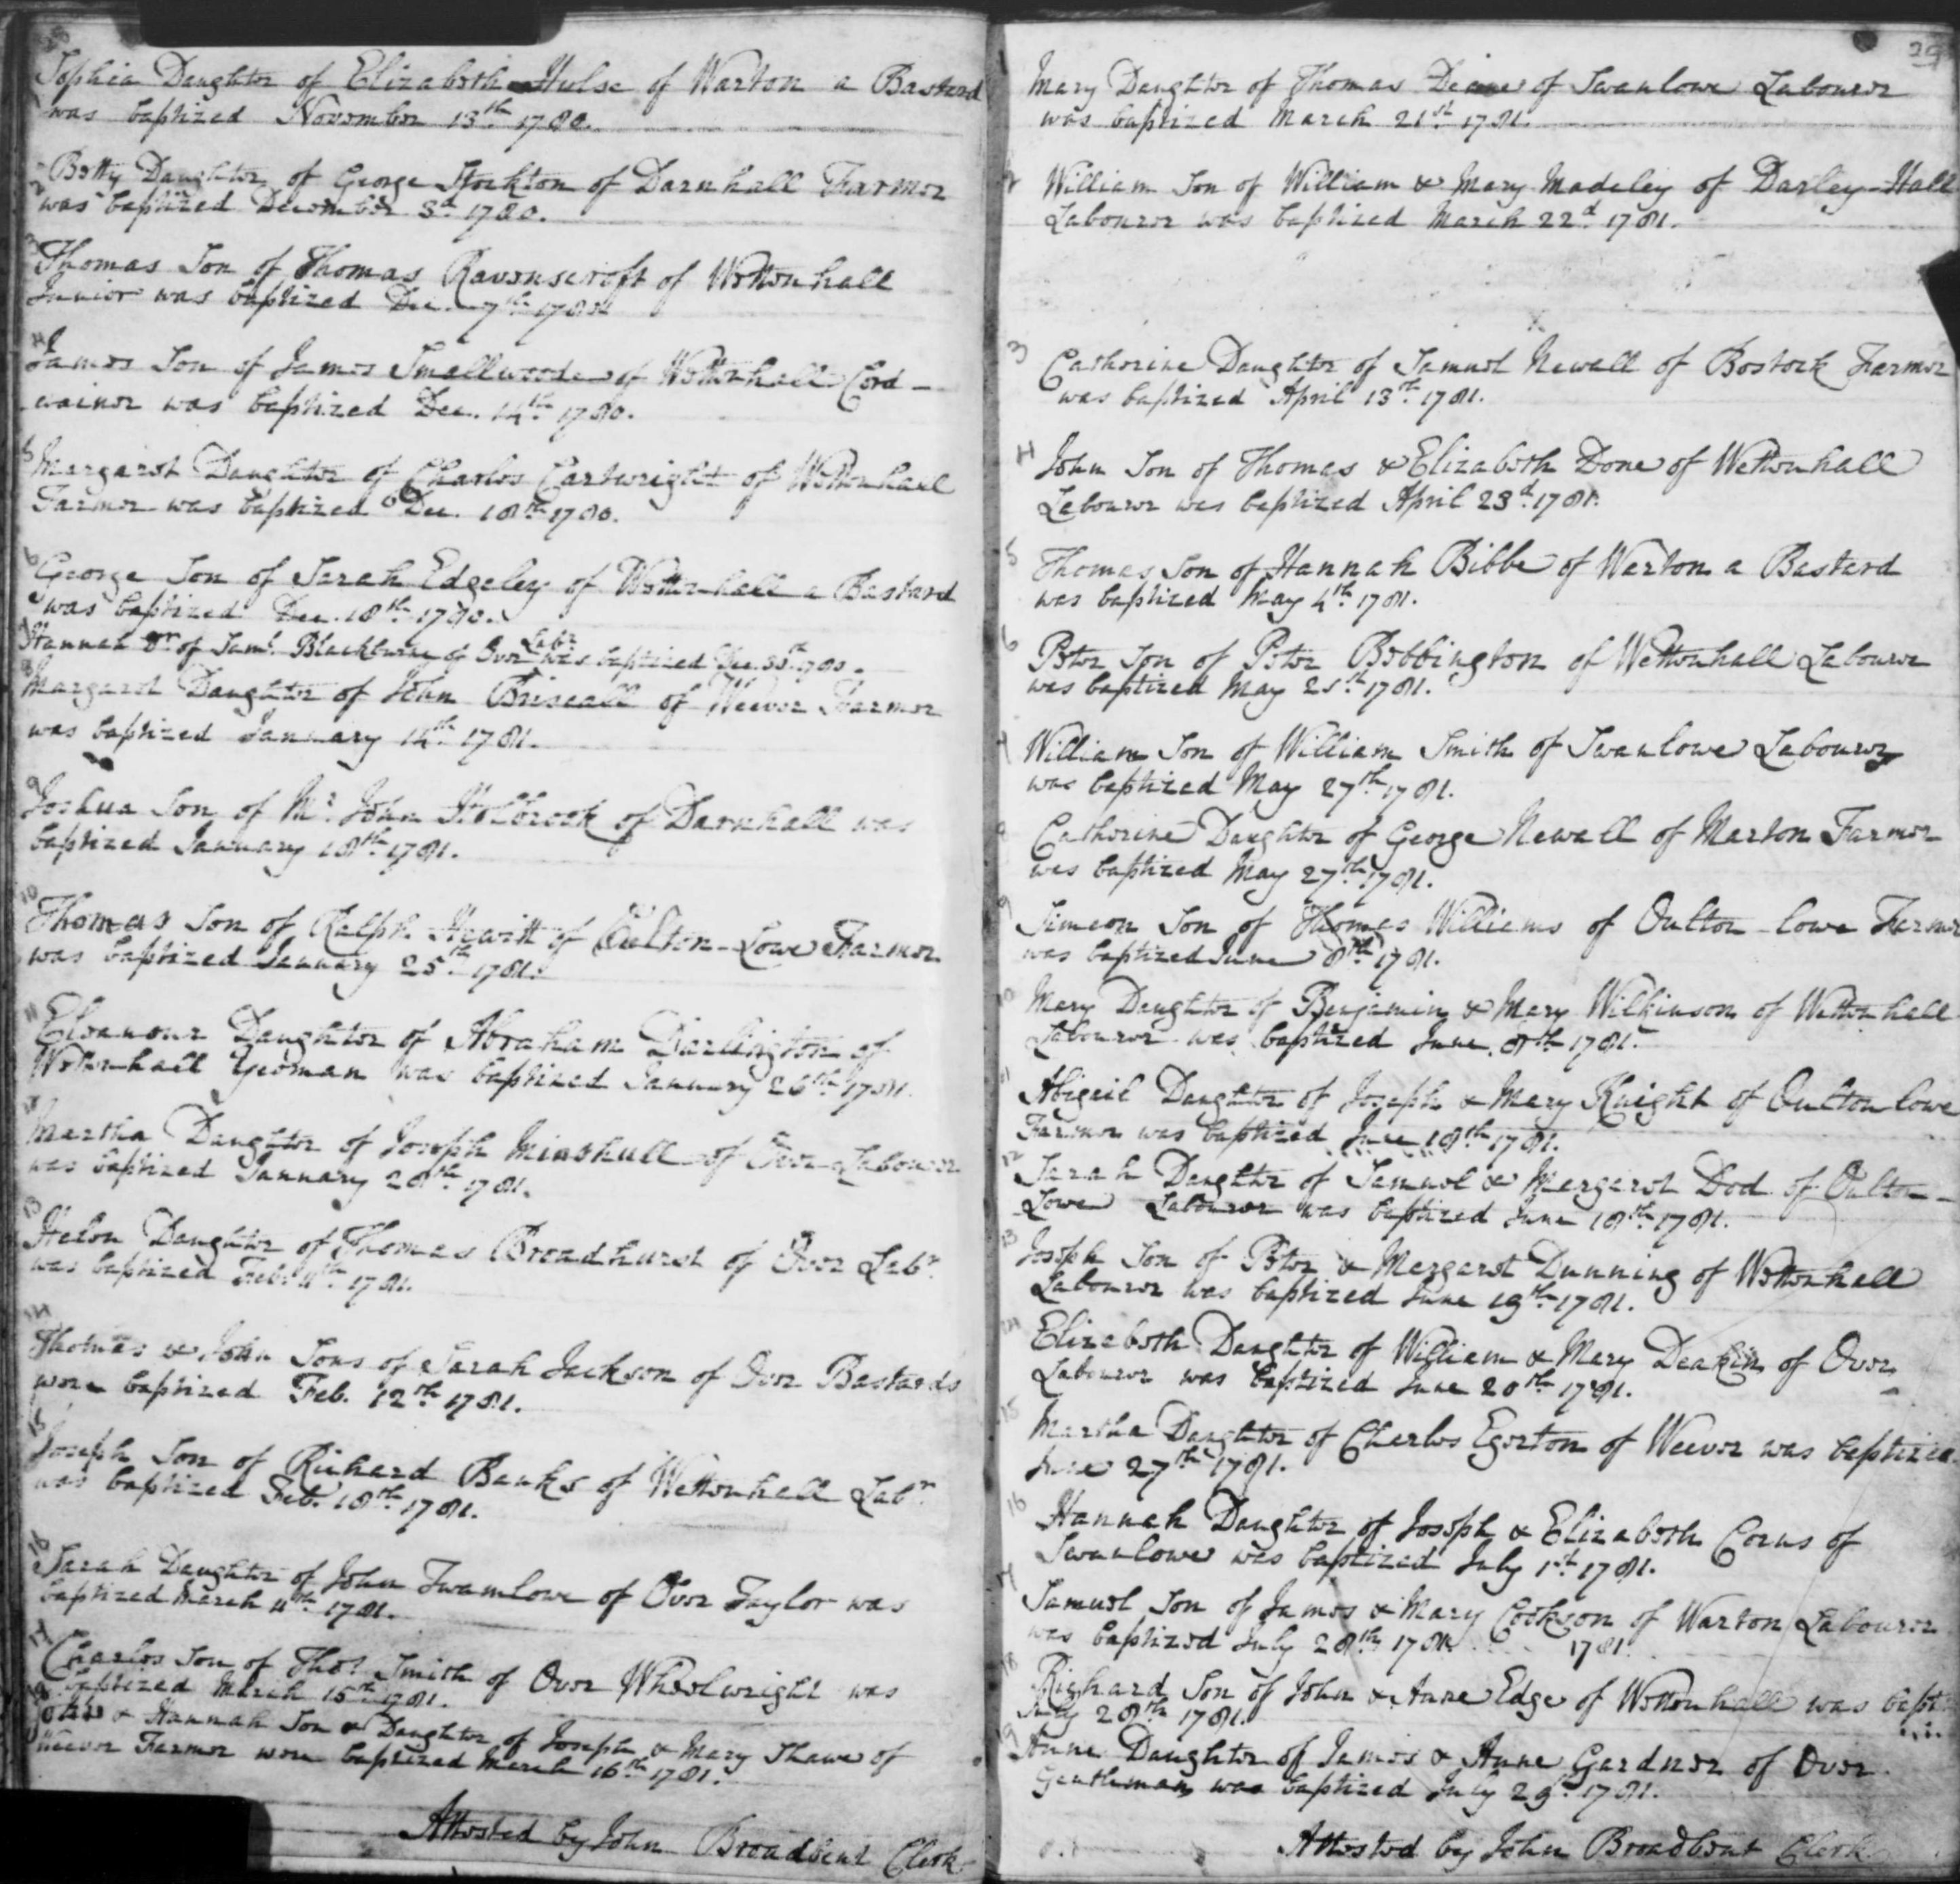 Sophia Daughter of Elizabeth Hulse of Warton a Bastard
was baptized November 13th 1780.
2 Betty Daughter of George Stockton of Darnhall Farmer
was baptized December 3d 1780.
3 Thomas Son of Thomas Ravenscroft of Wettenhall
Junior was baptized Dec. 7th 1780
4 James Son of James Smallwoode of Wettenhall Cord-
wainer was baptized Dec. 14th 1780.
5 Margaret Daughter of Charles Cartwright of Wettenhall
Farmer was baptized Dec. 18th 1780.
6 George Son of Sarah Edgeley of Wettenhall a Bastard
was baptized Dec. 18th 1780.
7 Hannah Dr. of Saml. Blackburn of Over Labr was baptized Dec. 30th 1780.
8 Margaret Daughter of John Briscall of Weever Farmer
was baptized January 14th 1781.
9 Joshua Son of Mr. John Holbrook of Darnhall was
baptized January 18th 1781.
10 Thomas Son of Ralph Hewitt of Oulton-Lowe Farmer
was baptized January 25th 1781.
11 Eleanour Daughter of Abraham Darlington of
Wettenhall Yeoman was baptized January 26th 1781.
12 Martha Daughter of Joseph Minshull of Over Labourer
was baptized January 28th 1781.
13 Helen Daughter of Thomas Broadhurst of Over Labr.
was baptized Feb. 4th 1781.
14 Thomas & John Sons of Sarah Jackson of Over Bastards
were baptized Feb. 12th 1781.
15 Joseph Son of Richard Banks of Wettenhall Labr.
was baptized Feb. 18th 1781.
16 Sarah Daughter of John Twamlowe of Over Taylor was
baptized March 4th 1781.
17 Charles Son of Thos. Smith of Over Wheelwright was
baptized March 15th 1781.
18 & Hannah Son & Daughter of Joseph & Mary Shawe of
Weever Farmer were baptized March 16th 1781.
Attested by John Broadbent Clerk
29
1 Mary Daughter of Thomas Deane of Swanlowe Labourer
was baptized March 21st 1781.
2 William Son of William & Mary Madeley of Darley-Hall
Labourer was baptized March 22d 1781.
3 Catherine Daughter of Samuel Newall of Bostock Farmer
was baptized April 13th 1781.
4 John Son of Thomas & Elizabeth Done of Wettenhall
Labourer was baptized April 23d 1781.
5 Thomas Son of Hannah Bibbe of Warton a Bastard
was baptized May 4th 1781.
6 Peter Son of Peter Bebbington of Wettenhall Labourer
was baptized May 25th 1781.
7 William Son of William Smith of Swanlowe Labourer
was baptized May 27th 1781.
8 Catherine Daughter of George Newall of Marton Farmer
was baptized May 27th 1781.
9 Simeon Son of Thomas Williams of Oulton-lowe Farmer
was baptized June 8th 1781.
10 Mary Daughter of Benjamin & Mary Wilkinson of Wettenhall
Labourer was baptized June 8th 1781.
11 Abigail Daughter of Joseph & Mary Knight of Oulton lowe
Farmer was baptized June 18th 1781.
12 Sarah Daughter of Samuel & Margaret Dod of Oulton-
Lowe Labourer was baptized June 18th 1781.
13 Joseph Son of Peter & Margaret Dunning of Wettenhall
Labourer was baptized June 19th 1781.
14 Elizabeth Daughter of William & Mary Deakin of Over
Labourer was baptized June 20th 1781.
15 Martha Daughter of Charles Egerton of Weever was baptized
June 27th 1781.
16 Hannah Daughter of Joseph & Elizabeth Corns of
Swanlowe was baptized July 1st 1781.
17 Samuel Son of James & Mary Cookson of Warton Labourer
was baptized July 28th 1781. 1781.
18 Richard Son of John & Anne Edge of Wettenhall was bapt.
July 28th 1781.
19 Anne Daughter of James & Anne Gardner of Over
Gentleman was baptized July 29th 1781.
Attested by John Broadbent Clerk